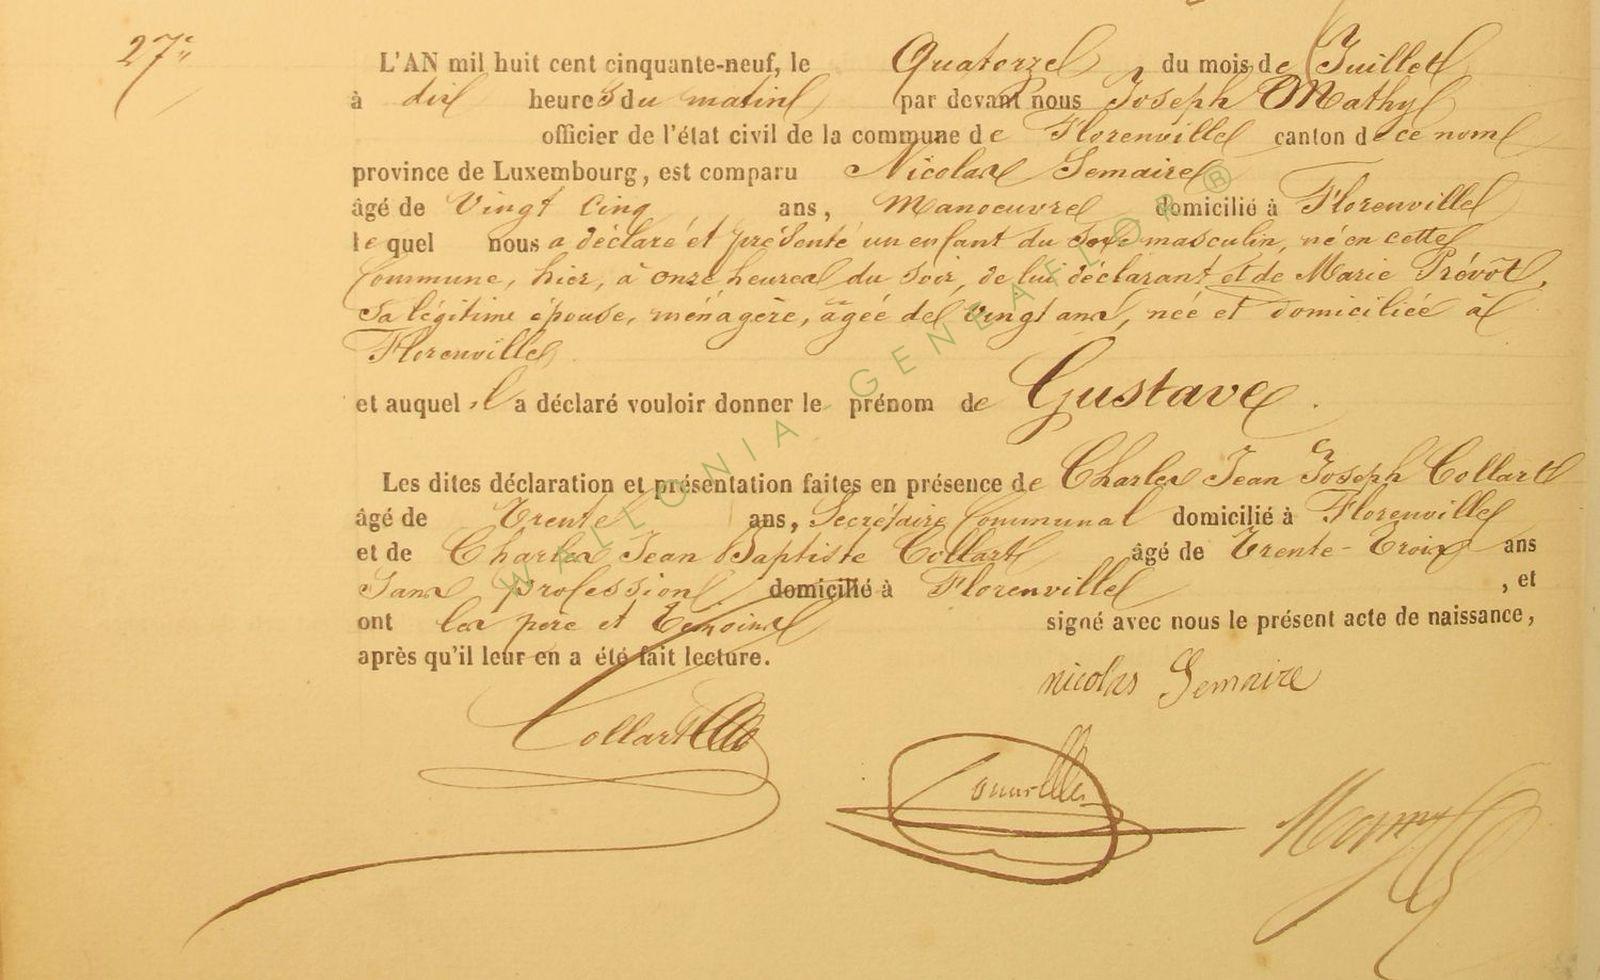 27e
L'AN mil huit cent cinquante-neuf, le Quatorze du mois de Juillet
à dix heures du matin par devant nous Joseph Mathy
officier de l'état civil de la commune de Florenville canton de ce nom
province de Luxembourg, est comparu Nicolas Semaire
âgé de Vingt Cinq ans, Manoeuvre domicilié à Florenville
lequel nous a déclaré et présenté un enfant du sexe masculin, né en cette
Commune, hier, à onze heures du soir, de lui déclarant et de Marie Prévôt,
sa légitime épouse, ménagère, âgée de vingt ans, née et domiciliée à
Florenville
et auquel il a déclaré vouloir donner le prénom de Gustave.
Les dites déclaration et présentation faites en présence de Charles Jean Joseph Collart
âgé de Trente ans, Secrétaire Communal domicilié à Florenville
et de Charles Jean Baptiste Collart âgé de Trente-Trois ans
Sans profession domicilié à Florenville, et
ont les père et témoins signé avec nous le présent acte de naissance,
après qu'il leur en a été fait lecture.
nicolas Semaire
Collart
WALLONIA - GENEAFLOR ®